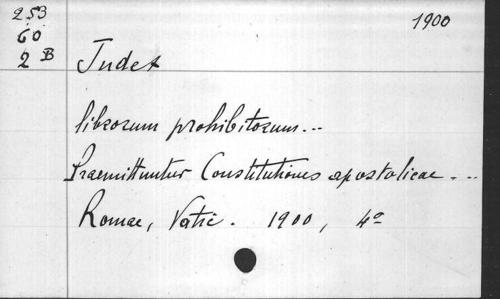 253
60
2 B
1900
Index
librorum prohibitorum...
Praemittuntur Constitutiones apostolicae...
Romae, Vatic. 1900, 4º